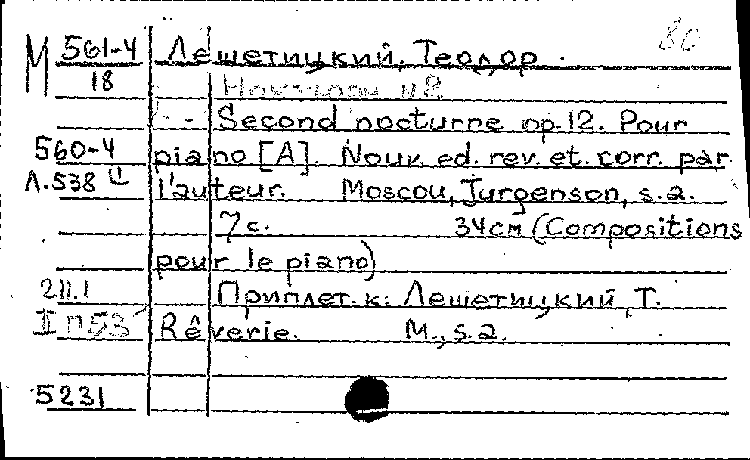 80
М 561-4 Лешетицкий, Теодор.
18 Ноктюрн №2
Second nocturne op.12. Pour
560-4 piano [A]. Nouv. ed. rev. et. corr. par
Л.538 l'auteur. Moscou, Jurgenson, s.a.
7с. 34см (Compositions
pour le piano)
2.11.1 Приплет. к: Лешетицкий, Т.
II П53 Rêverie. М., s.a.
5231